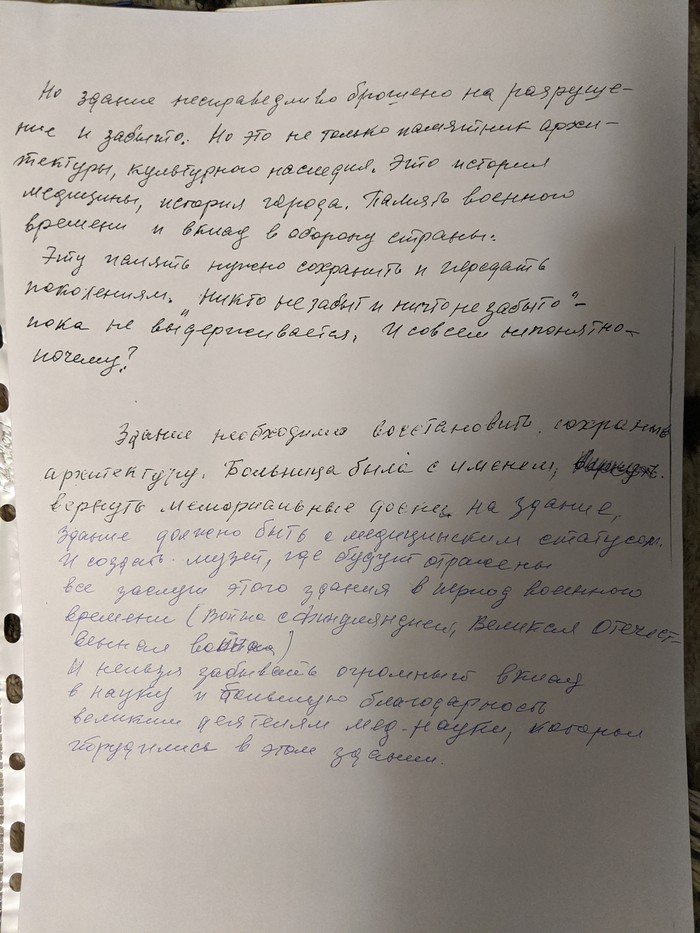 Но здание несправедливо брошено на разруще-
ние и забыто. Но это не только памятник архи-
тектуры, культурного наследия. Это история
медицины, история города. Память военного
времени и вклад в оборону страны.
Эту память нужно сохранить и передать
поколениям. "Никто не забыт и ничто не забыто" -
пока не выдерживается. И совсем непонятно -
почему?
Здание необходимо восстановить, сохранить
архитектуру. Больница была с именем,
вернуть мемориальные доски на здание,
Здание должно быть с медицинским статусом.
И создать музей, где будут отражены
все заслуги этого здания в период военного
времени (Война с Финляндией, Великая Отечест-
венная война)
И нельзя забывать огромный вклад
в науку и большую благодарность
великим деятелям мед. науки, которые
трудились в этом здании.